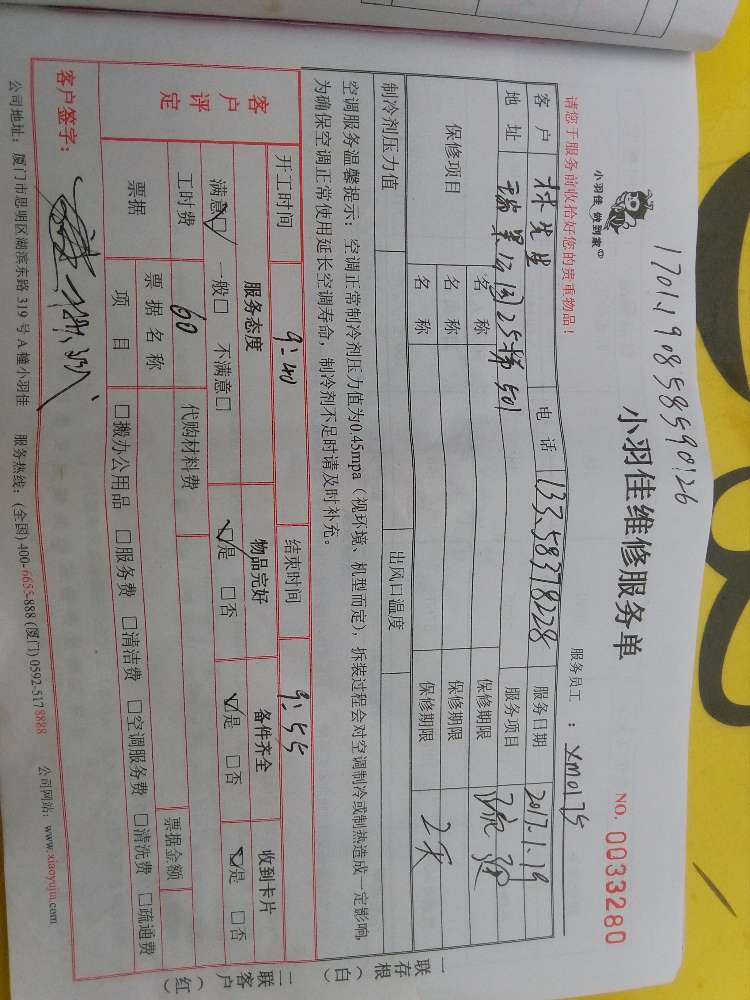 1701190858590126
小羽佳 做到家
小羽佳维修服务单
NO. 0033280
请您于服务前收拾好您的贵重物品!
服务员工 : xm0175
客户 林先生 电话 13358378228 服务日期 2017.1.19
地址 瑞景 25梯 501 服务项目 疏通
保修项目 名称 保修期限
名称 保修期限
名称 保修期限 2天
制冷剂压力值 出风口温度
空调服务温馨提示: 空调正常制冷剂压力值为0.45mpa (视环境、机型而定), 拆装过程会对空调制冷或制热造成一定影响,
为确保空调正常使用延长空调寿命, 制冷剂不足时请及时补充。
开工时间 9:40 结束时间 9:55
客户评定 服务态度 物品完好 备件齐全 收到卡片
满意☑ 一般□ 不满意□ ☑是 □否 ☑是 □否 ☑是 □否
工时费 60 代购材料费
票据 票据名称 票据金额
项目 □搬办公用品 □服务费 □清洁费 □空调服务费 □清洗费 □疏通费
客户签字:
公司地址: 厦门市思明区湖滨东路 319 号 A 幢小羽佳 服务热线: (全国) 400-6655-888 (厦门) 0592-5178888 公司网站: www.xiaoyujia.com
一联存根(白)
二联客户(红)